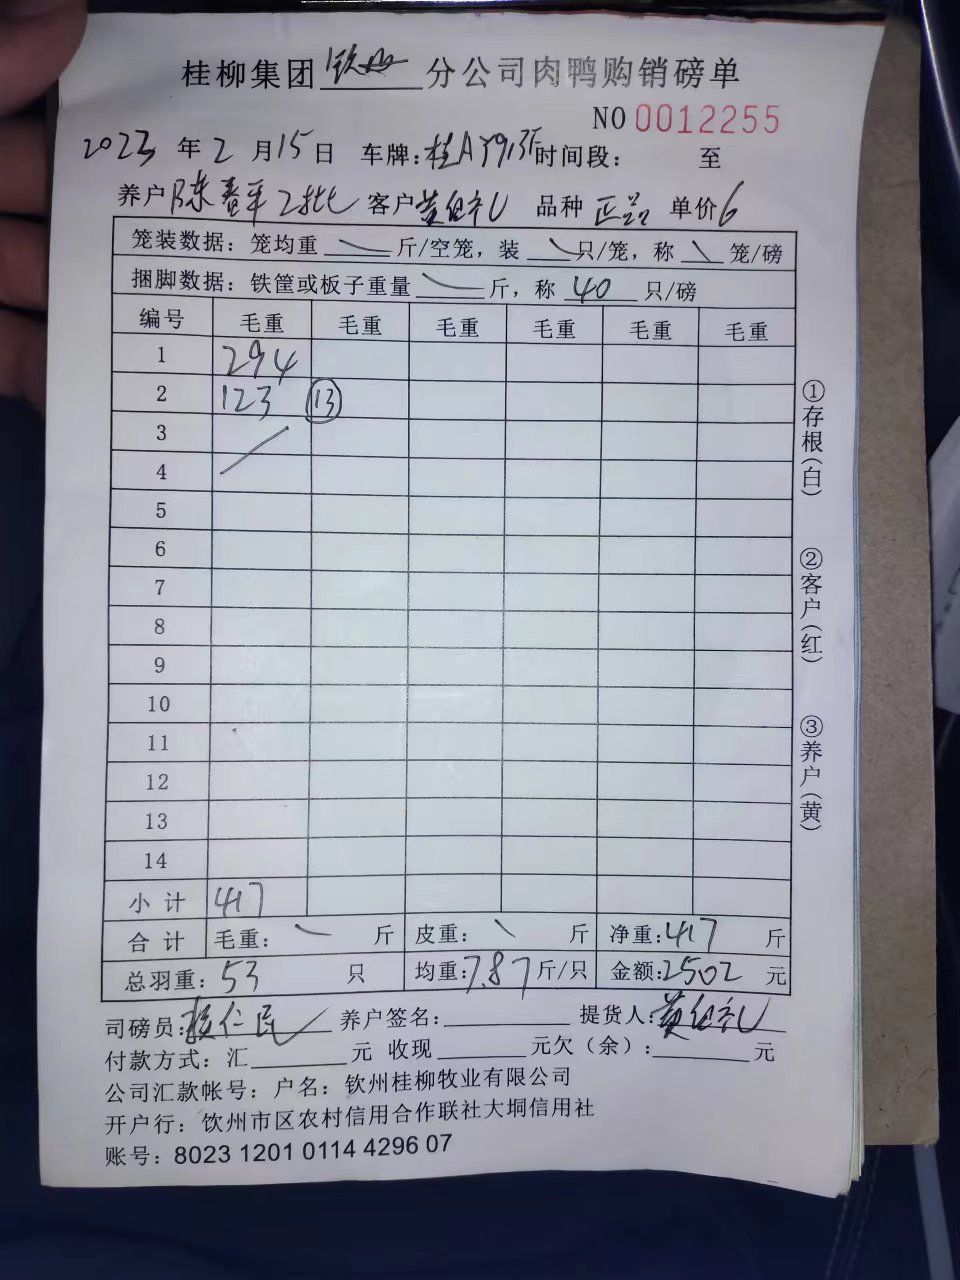 桂柳集团 钦州 分公司肉鸭购销磅单
NO 0012255
2023 年 2 月 15 日 车牌: 桂A 时间段: 至
养户 陈春平 2批 客户 黄 品种 正品 单价 6
笼装数据: 笼均重 斤/空笼, 装 只/笼, 称 笼/磅
捆脚数据: 铁筐或板子重量 斤, 称 40 只/磅
编号 毛重 毛重 毛重 毛重 毛重 毛重
1 294
2 123 13
3
4
5
6
7
8
9
10
11
12
13
14
小计 417
合计 毛重: 斤 皮重: 斤 净重: 417 斤
总羽重: 53 只 均重: 7.87 斤/只 金额: 2502 元
司磅员: 仁民 养户签名: 提货人: 黄
付款方式: 汇 元 收现 元欠(余): 元
公司汇款帐号: 户名: 钦州桂柳牧业有限公司
开户行: 饮州市区农村信用合作联社大垌信用社
账号: 8023 1201 0114 4296 07
①存根(白)
②客户(红)
③养户(黄)